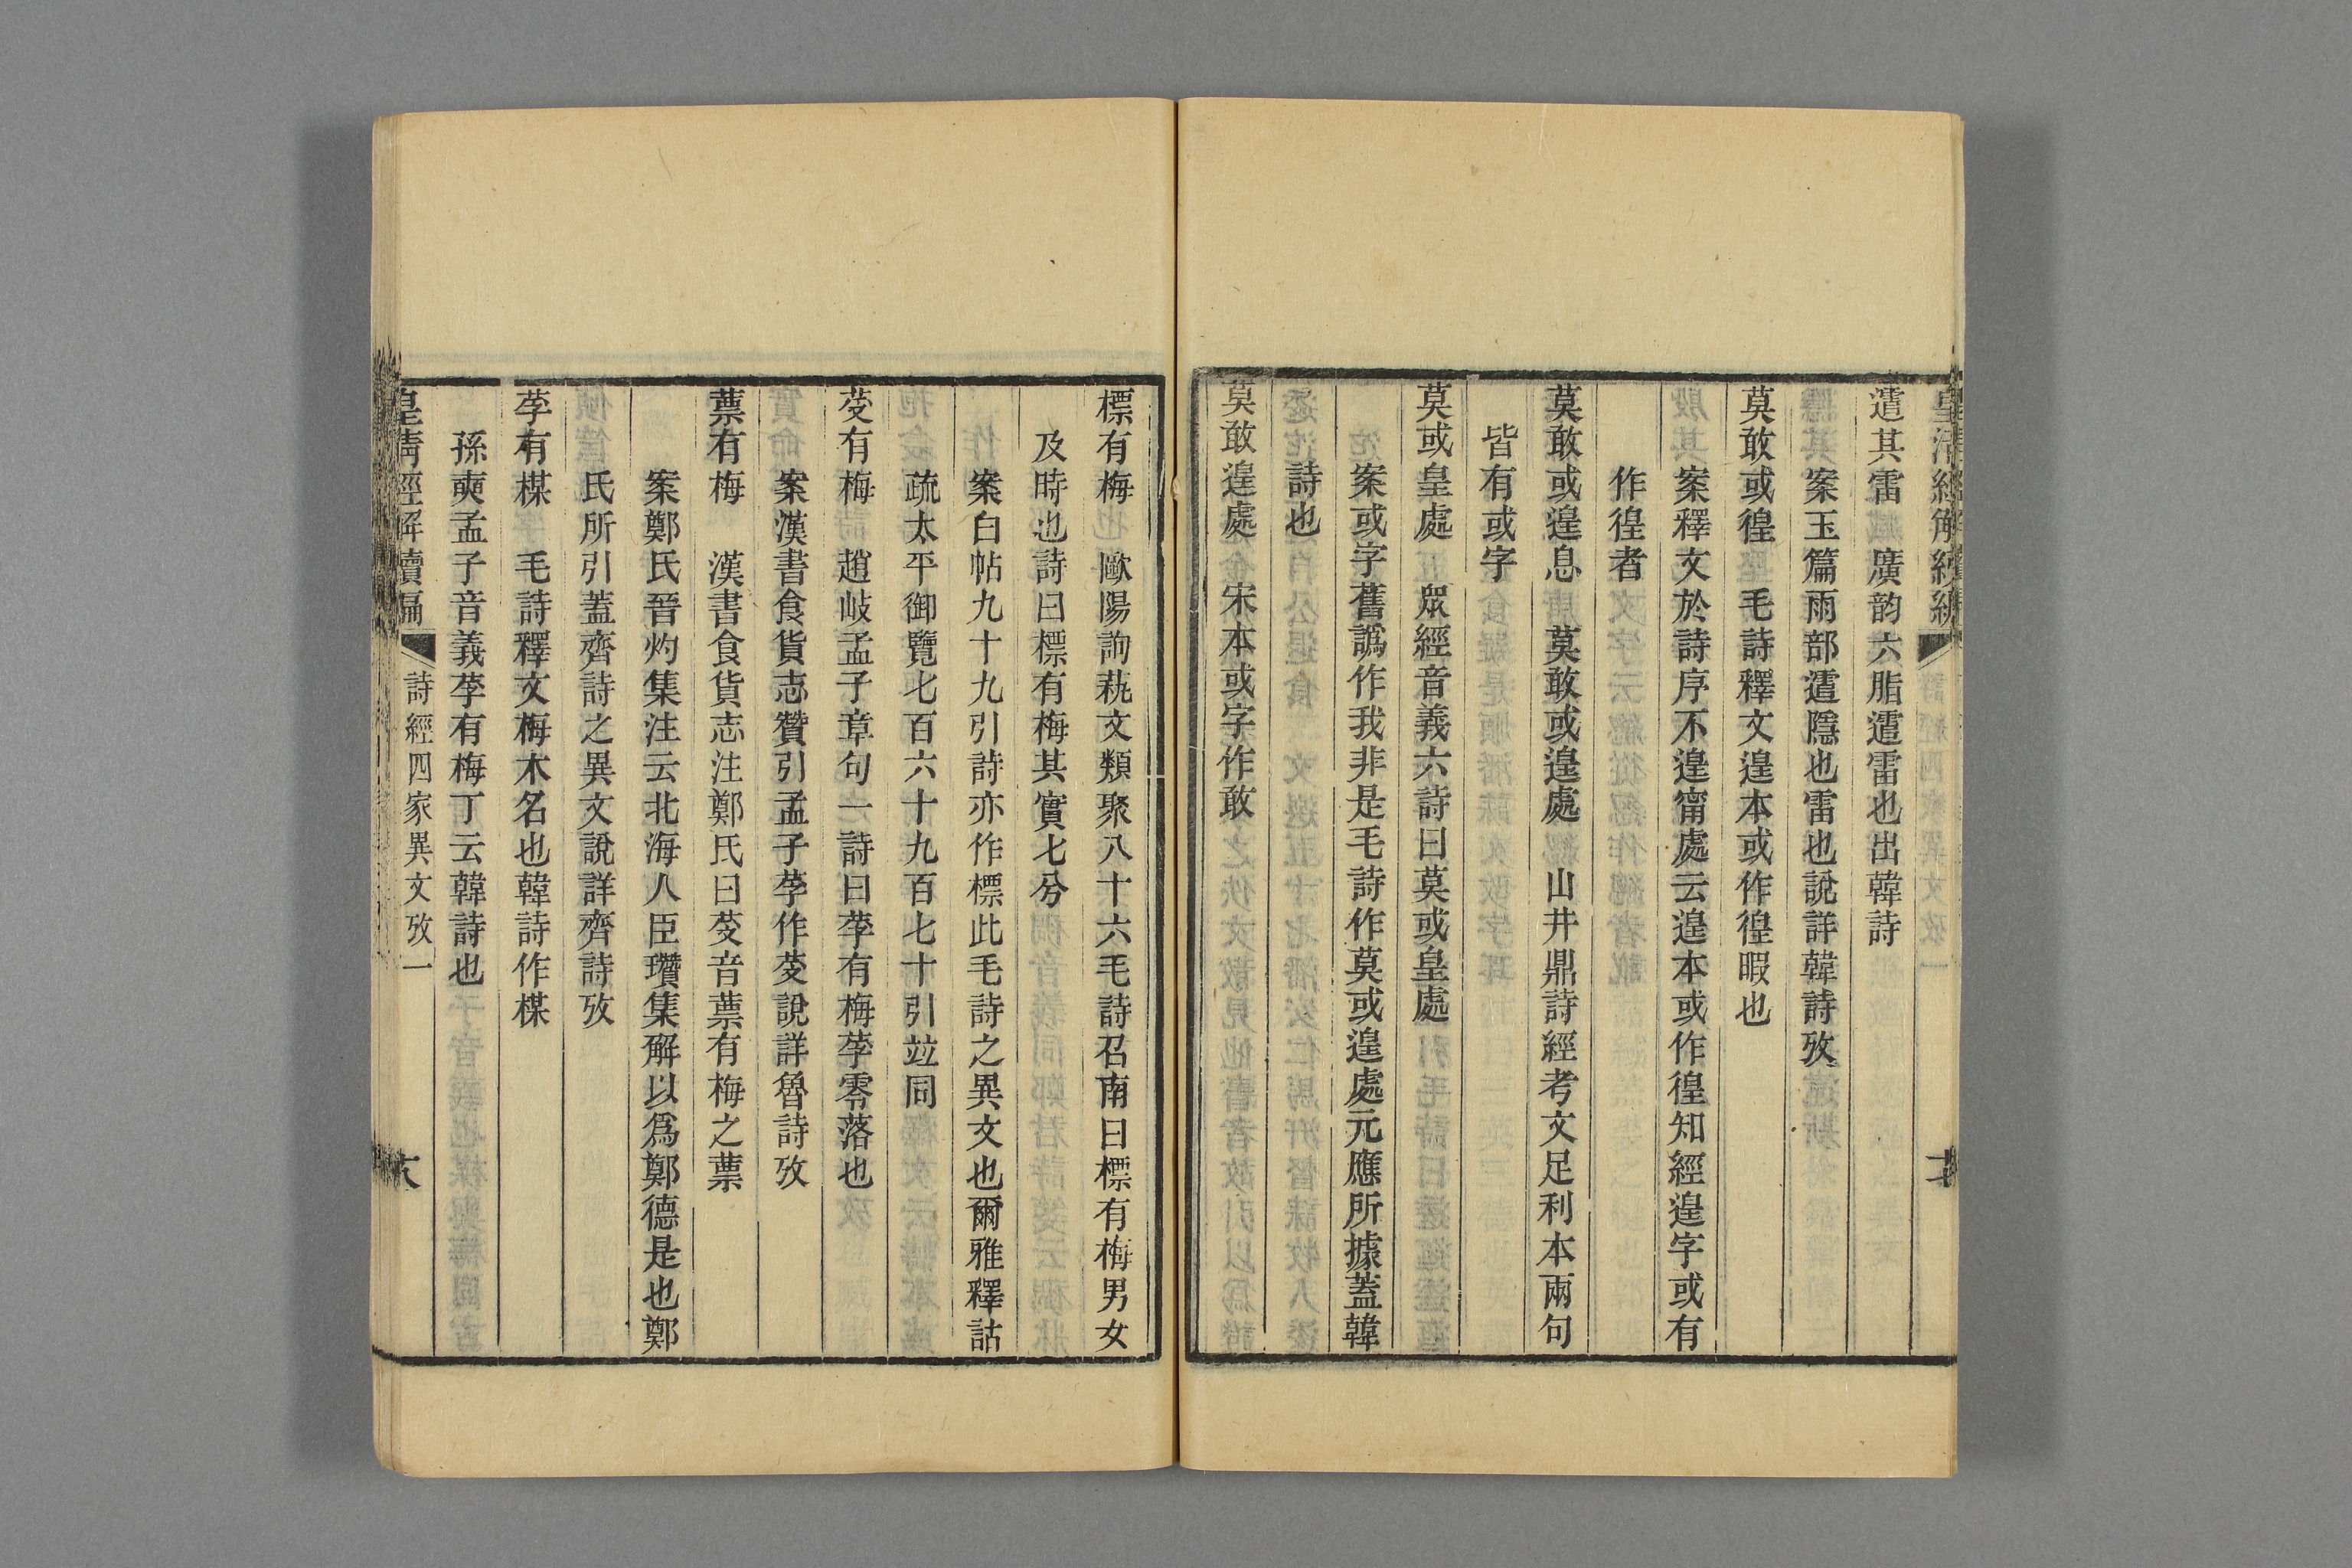 遣其雷　廣韵六脂遣雷也出韓詩
案玉篇雨部遣隱也雷也說詳韓詩攷
莫敢或徨　毛詩釋文遑本或作徨暇也
案釋文於詩序不遑甯處云遑本或作徨知經遑字或有
作徨者
莫敢或遑息　莫敢或遑處　山井鼎詩經考文足利本兩句
皆有或字
莫或皇處　眾經音義六詩曰莫或皇處
案或字舊譌作我非是毛詩作莫或遑處元應所據蓋韓
詩也
莫敢遑處　宋本或字作敢
標有梅　歐陽詢蓺文類聚八十六毛詩召南曰標有梅男女
及時也詩曰標有梅其實七兮
案白帖九十九引詩亦作標此毛詩之異文也爾雅釋詁
疏太平御覽七百六十九百七十引竝同
芟有梅　趙岐孟子章句一詩曰莩有梅莩零落也
案漢書食貨志贊引孟子莩作芟說詳魯詩攷
蔈有梅　漢書食貨志注鄭氏曰芟音蔈有梅之蔈
案鄭氏晉灼集注云北海人臣瓚集解以爲鄭德是也鄭
氏所引蓋齊詩之異文說詳齊詩攷
莩有楳　毛詩釋文梅木名也韓詩作楳
孫奭孟子音義莩有梅丁云韓詩也
皇清經解續編　詩經四家異文攷一